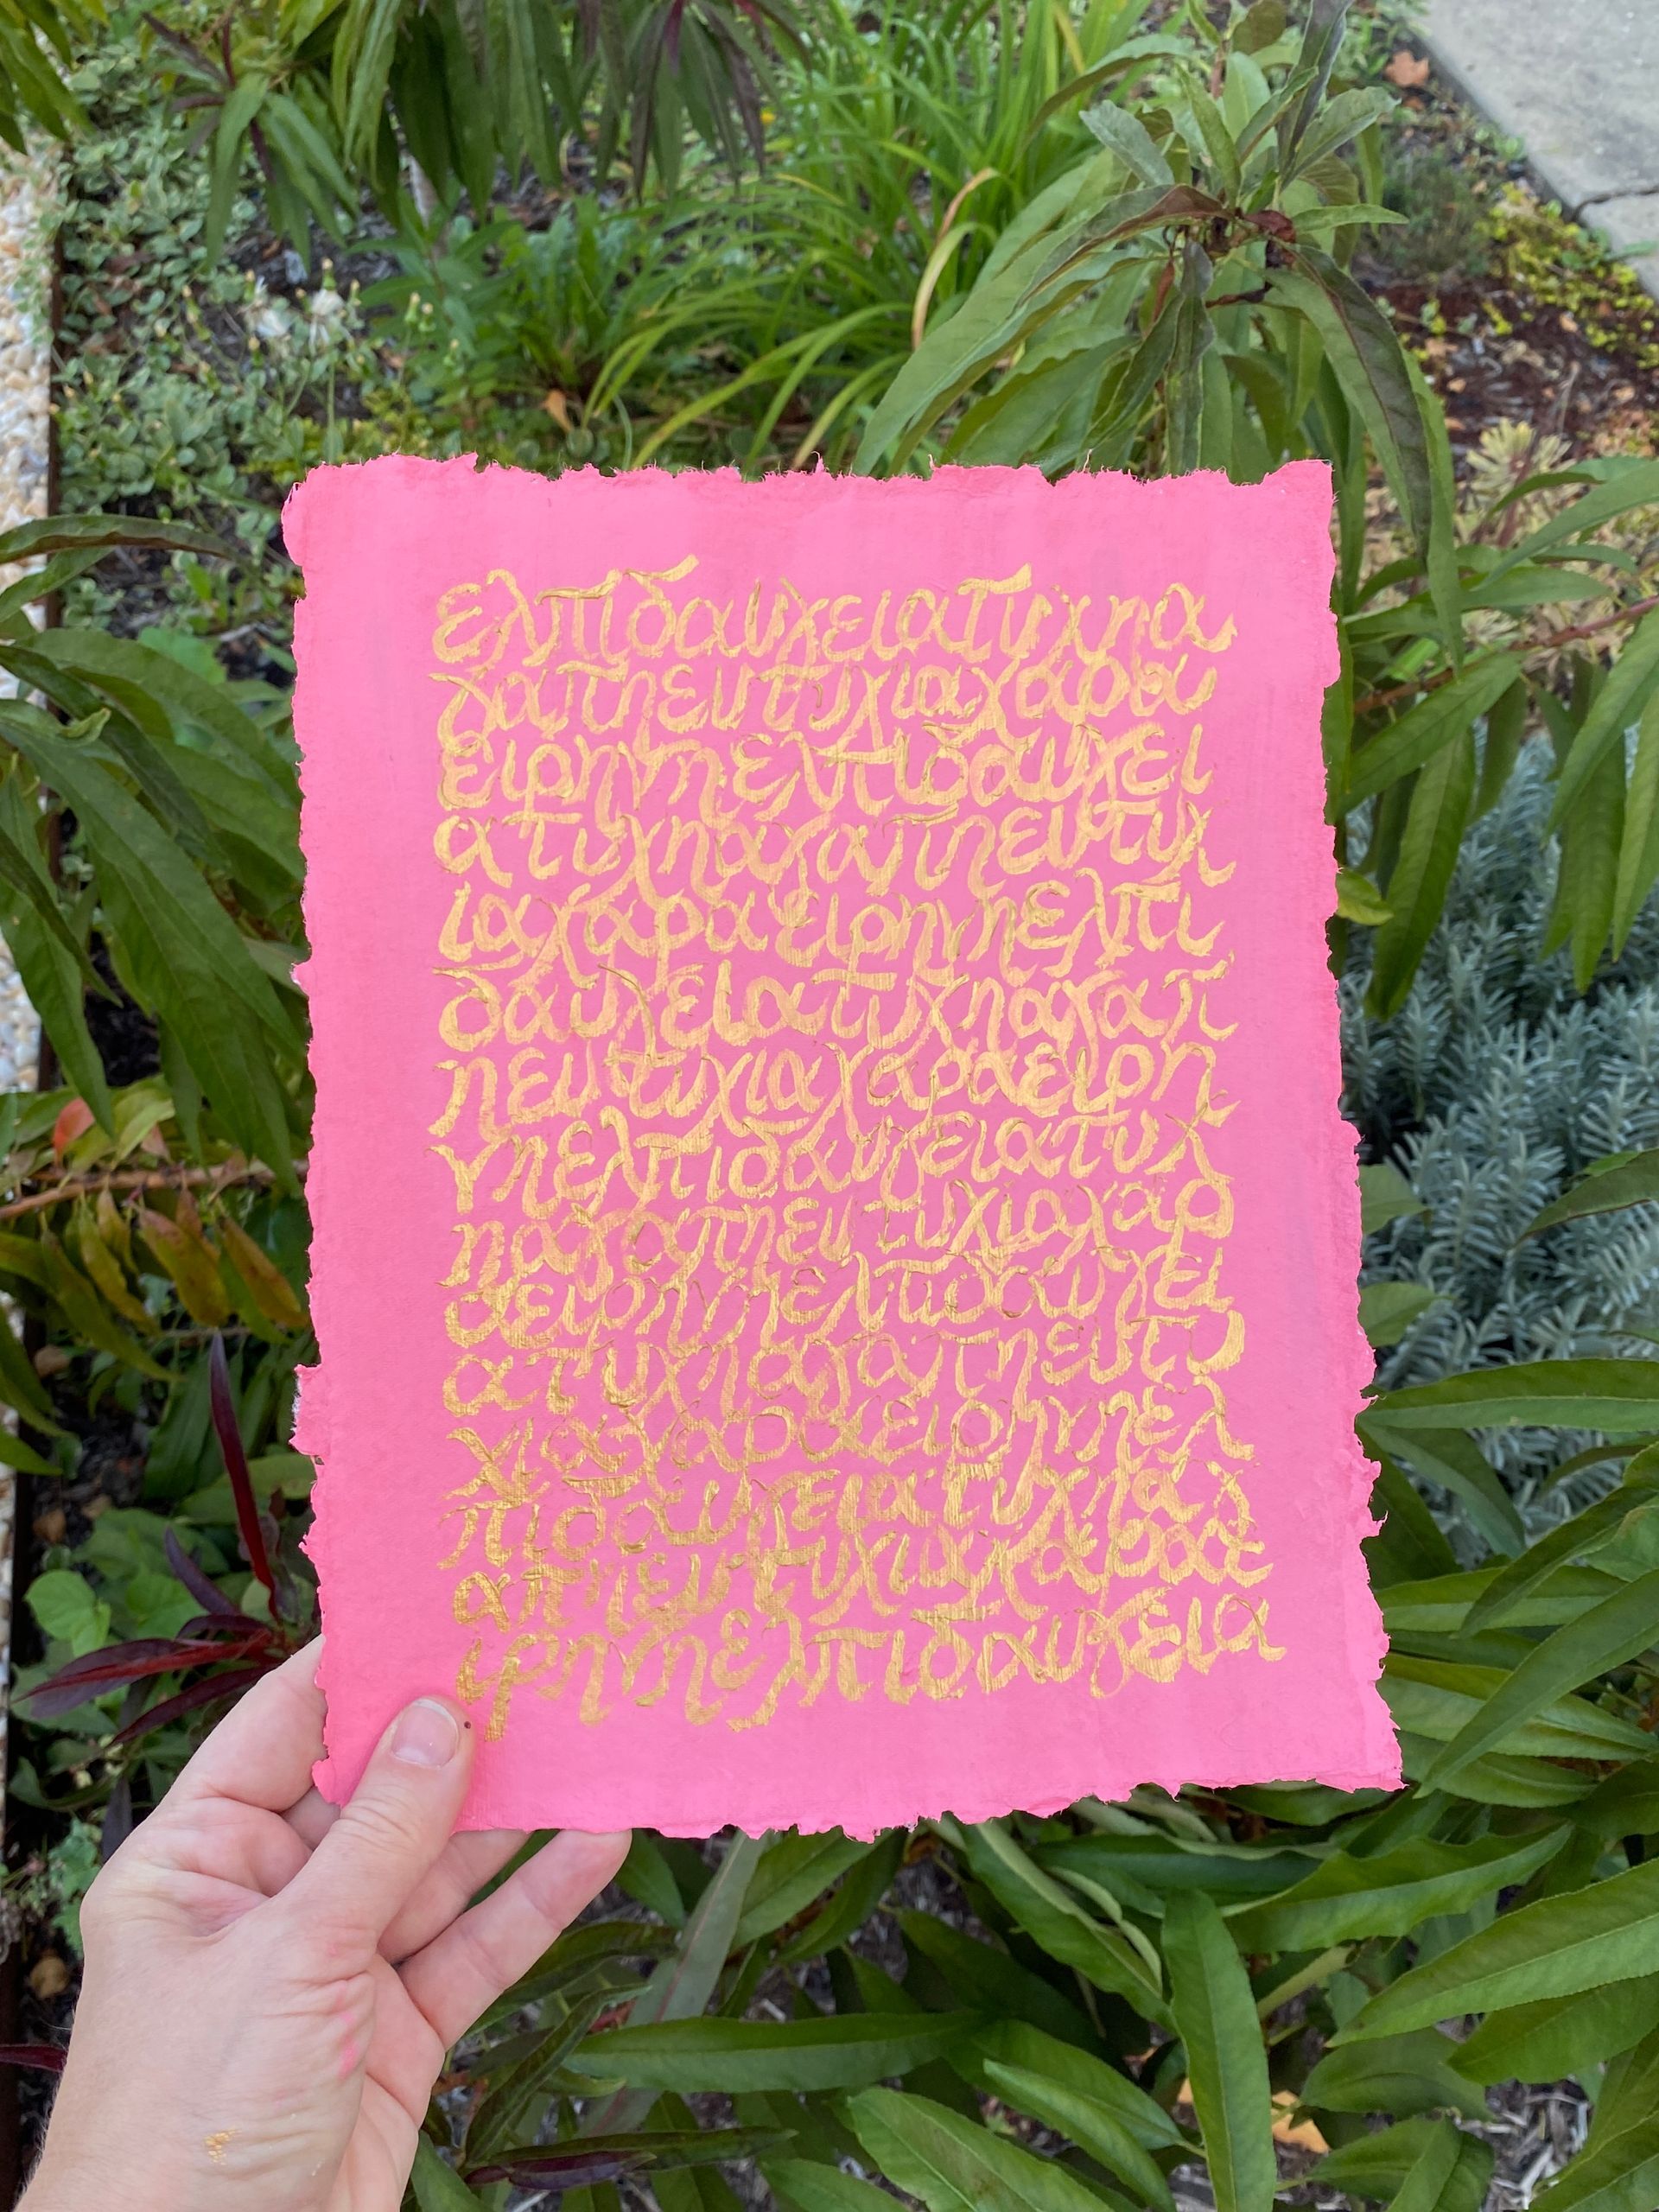 ελπιδαυγειατυχηα
γαπηευτυχιαχαρα
ειρηνηελπιδαυγει
ατυχηαγαπηευτυχ
ιαχαραειρηνηελπι
δαυγειατυχηαγαπ
ηευτυχιαχαραειρη
νηελπιδαυγειατυχ
ηαγαπηευτυχιαχαρ
αειρηνηελπιδαυγει
ατυχηαγαπηευτυ
χιαχαραειρηνηελ
πιδαυγειατυχηαγ
απηευτυχιαχαραε
ιρηνηελπιδαυγεια